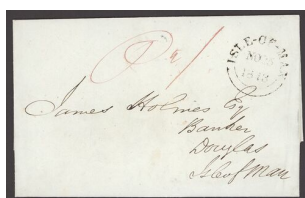 ISLE-OF-MAN
1843
James Holmes Esq
Banker
Douglas
Isle of Man